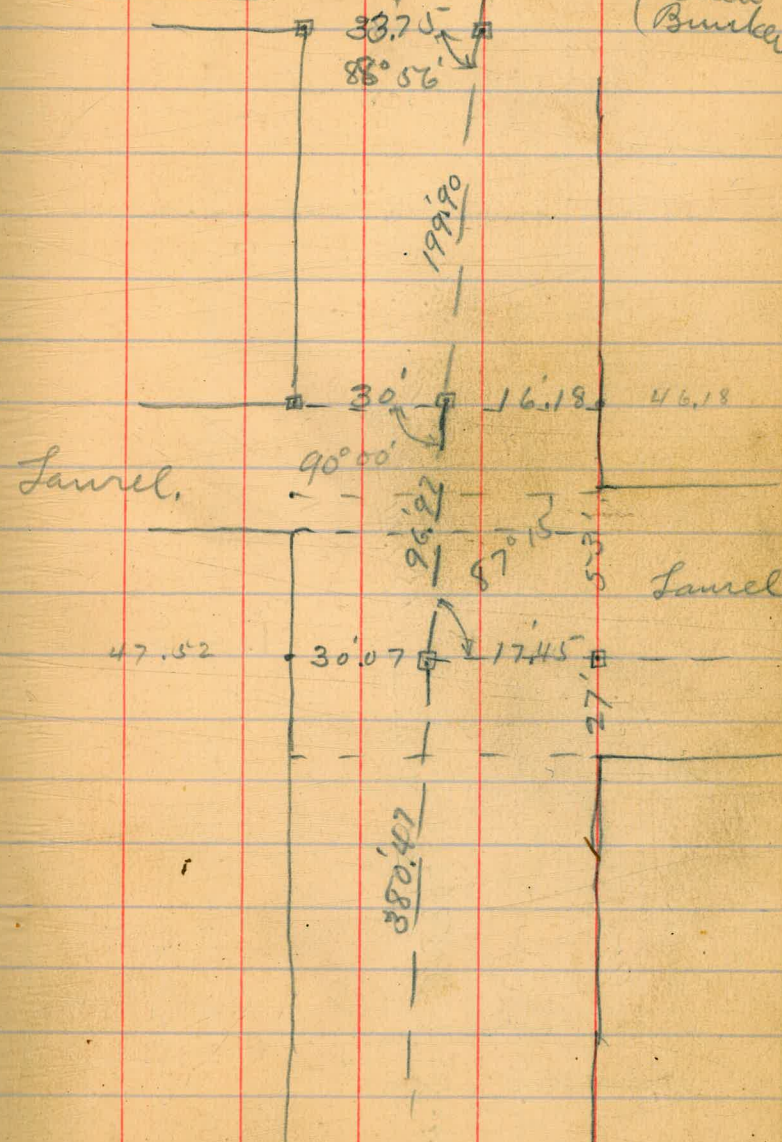 (Bunker
33.'75
88° 56'
199.'90
30'
16.'18
46.18
90° 00'
Laurel.
96.'92
87° 15'
53'
Laurel
47.52
30.'07
17.'45
27'
380.'47